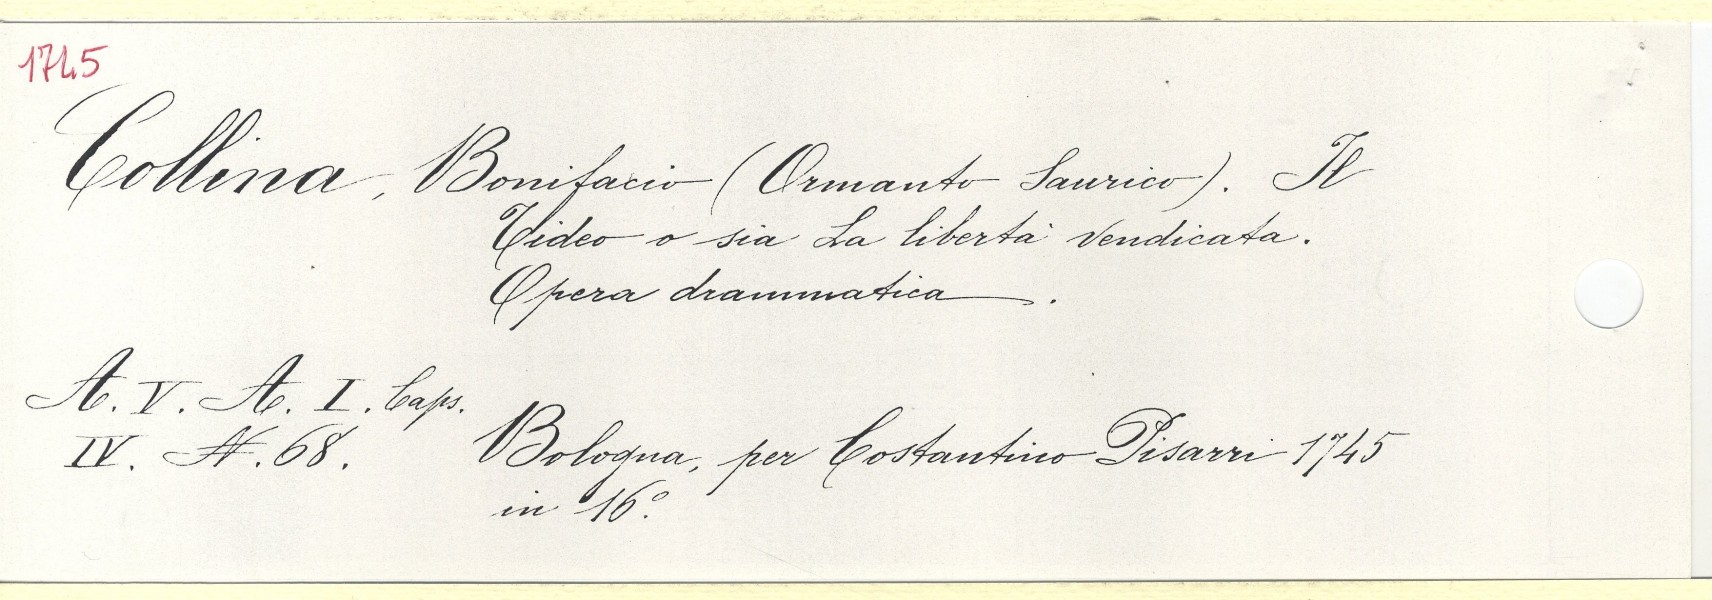 1745
Collina, Bonifacio (Ormanto Saurico). Il
Tideo o sia La libertà vendicata.
Opera drammatica.
A. V. A. I. Caps.
IV. N. 68.
Bologna, per Costantino Pisarri 1745
in 16°.